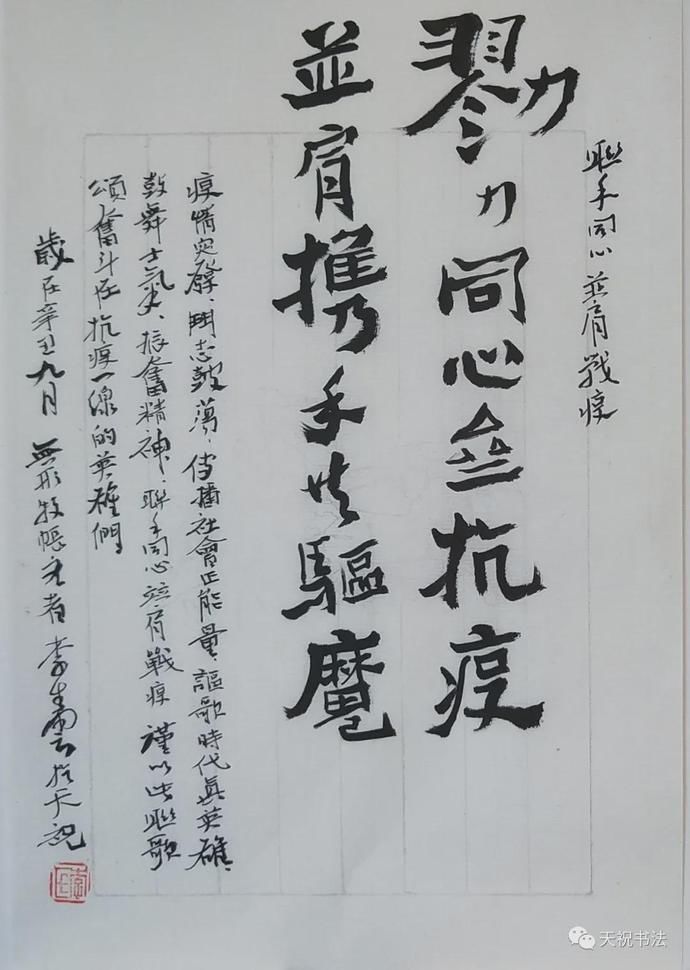 聯手同心並肩戰疫
勠力同心亝抗疫
並肩携手共驅魔
疫情突襲、鬥志鼓蕩、传播社會正能量、謳歌時代真英雄、
鼓舞士氣、振奮精神、聯手同心並肩戰疫 謹以此聯歌
頌奮斗在抗疫一線的英雄們
歲在辛丑九月 無形牧帳主者 李生雲於天祝
天祝书法